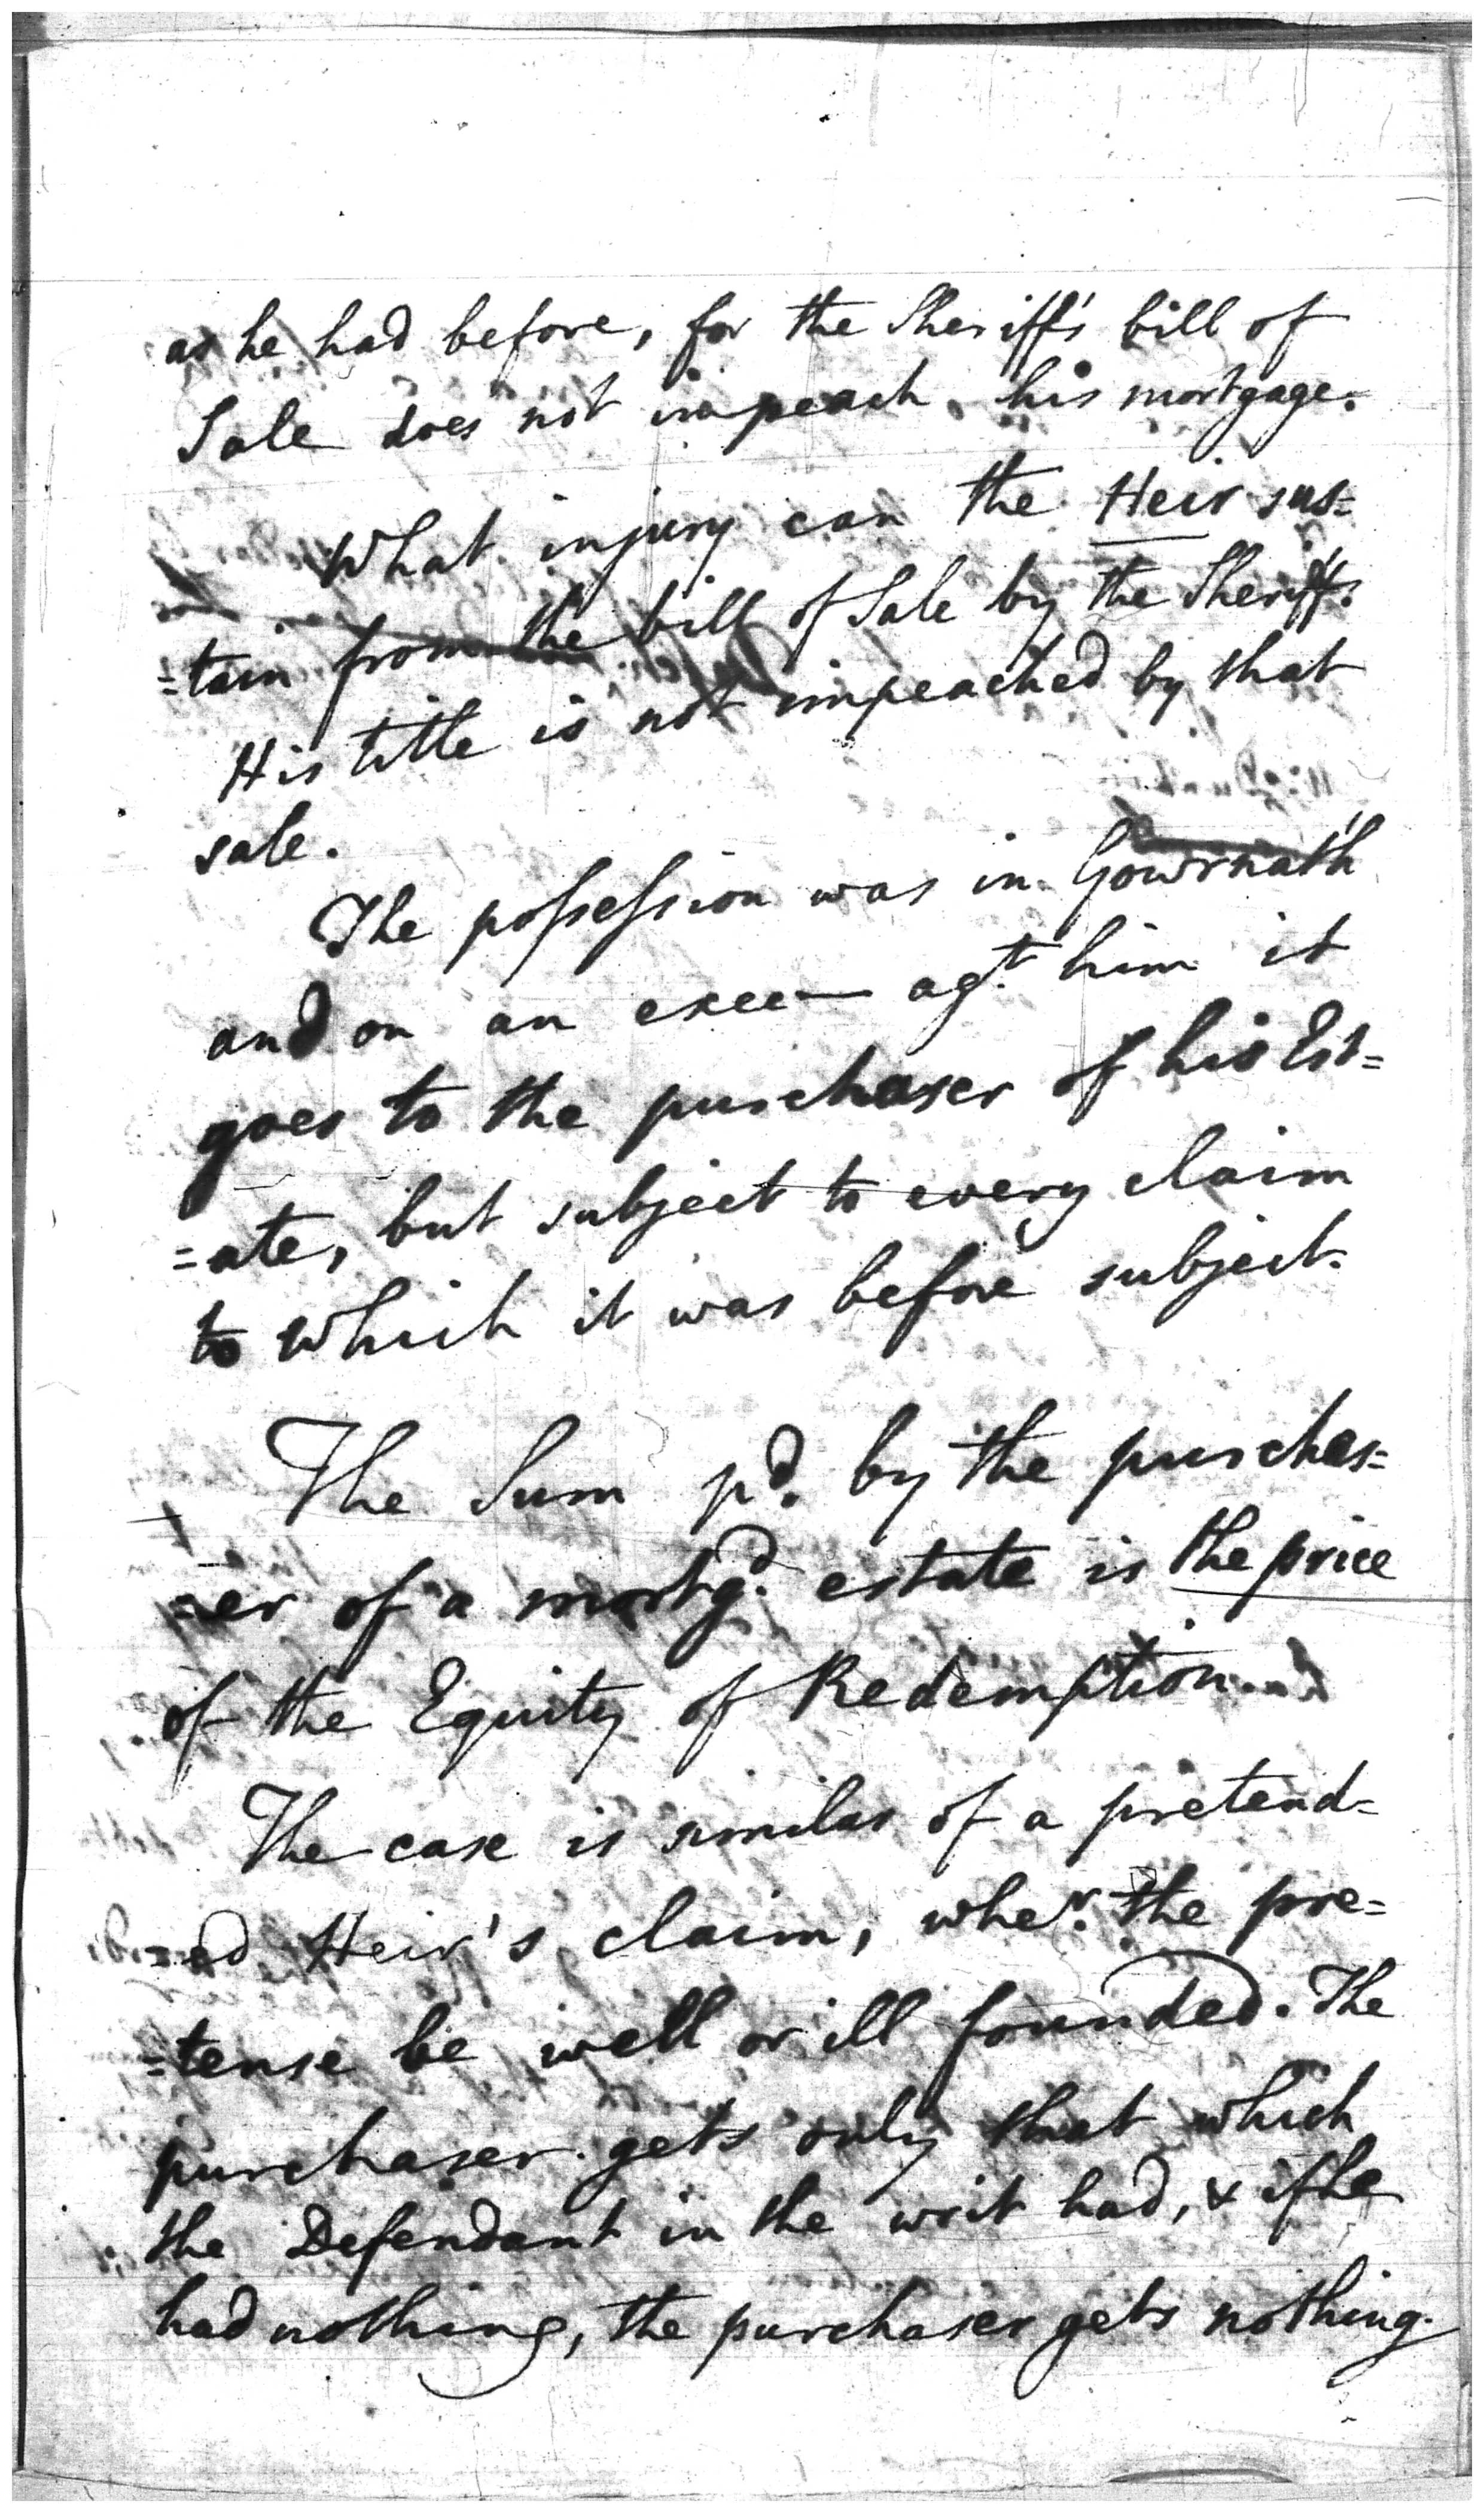 as he had before, for the Sheriff's bill of
Sale does not impeach his mortgage.
What injury can the Heir sus=
=tain from the bill of Sale by the Sheriff.
His title is not impeached by that
sale.
The possession was in Gowrnath
and on an exec— agt. him it
goes to the purchaser of his Est=
=ate, but subject to every claim
to which it was before subject.
The Sum pd. by the purchas=
=er of a mortgd. estate is the price
of the Equity of Redemption.
The case is similar of a pretend=
=ed Heir's claim, wher. the pre=
=tense be well or ill founded. The
purchaser gets only that which
the Defendant in the writ had, & if he
had nothing, the purchaser gets nothing.